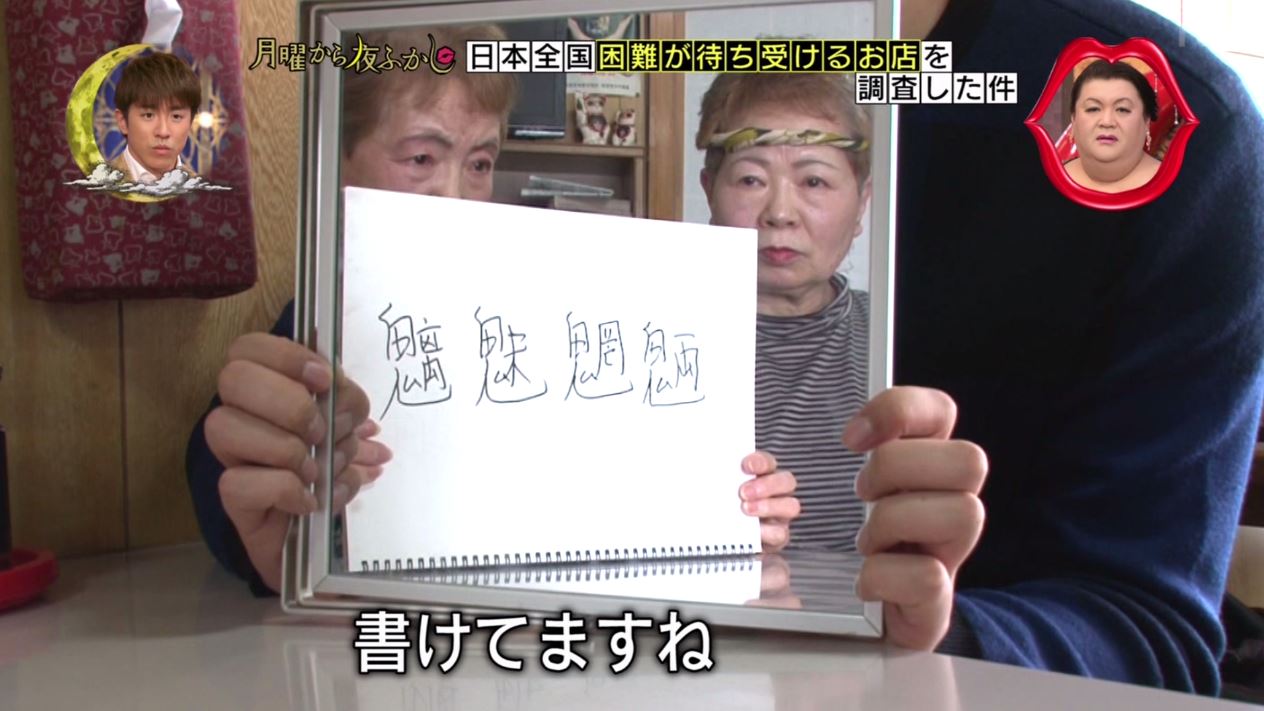 月曜から夜ふかし
日本全国困難が待ち受けるお店を
調査した件
魑魅魍魎
書けてますね